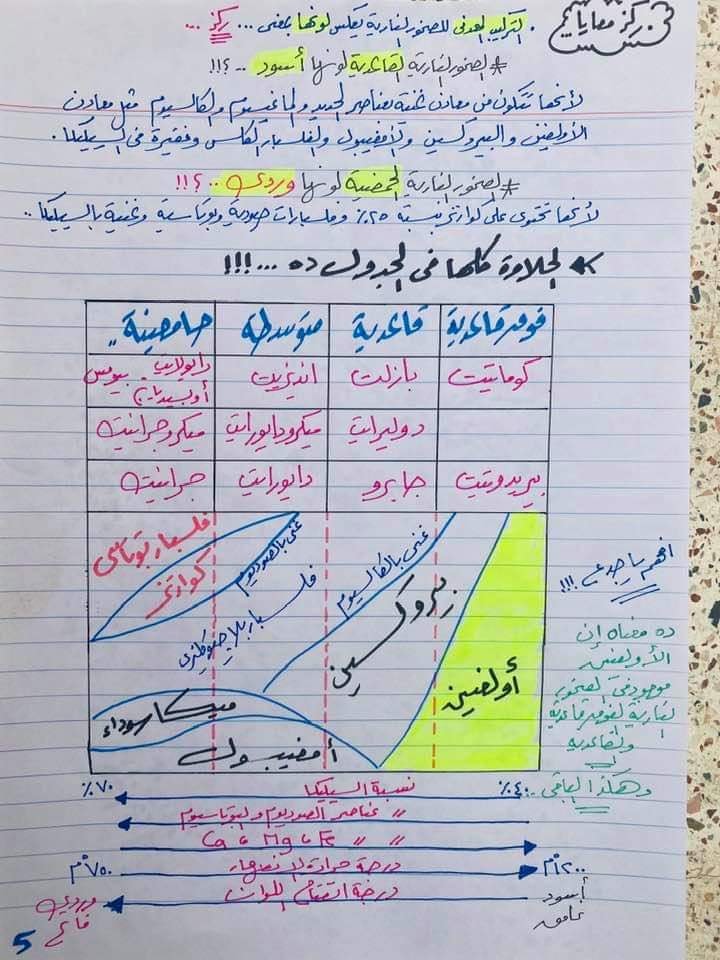 ركز معايا
. التركيب المعدنى للصخور النارية يعكس لونها بمعنى ... ركز ...
* الصخور النارية القاعدية لونها أسود ..؟!!
لأنها تتكون من معادن غنية بعناصر الحديد والماغنسيوم والكالسيوم مثل معادن
الأولفين والبيروكسين والأمفيبول والفلسبار الكلسى وفقيرة فى السيليكا.
* الصخور النارية الحمضية لونها وردى ..؟!!
لأنها تحتوى على كوارتز بنسبة ٢٥٪ وفلسبارات صودية وبوتاسية وغنية بالسيليكا..
الحلاوة كلها فى الجدول ده ...!!!
فوق قاعدية قاعدية متوسطة حامضية
كوماتيت بازلت انديزيت رايوليت - بيومس
أوبسيديان
دوليرايت ميكرودايورايت ميكروجرانيت
بيريدوتيت جابرو دايورايت جرانيت
فلسبار بوتاسى
كوارتز
غنى بالصوديوم
فلسبار بلاجيوكليزى
غنى بالكالسيوم
بيروكسين
أولفين
ميكا سوداء
أمفيبول
افهم يا جدع !!!
ده معناه إن
الأولفين
موجود فى الصخور
النارية الفوق قاعدية
والقاعدية
وهكذا الباقى..
٤٠٪ نسبة السيليكا ٧٠٪
〃 عناصر الصوديوم والبوتاسيوم
〃 〃 Fe و Mg و Ca
١٢٠٠°م درجة حرارة الانصهار ٧٥٠°م
أسود غامق درجة اللون وردى فاتح
5